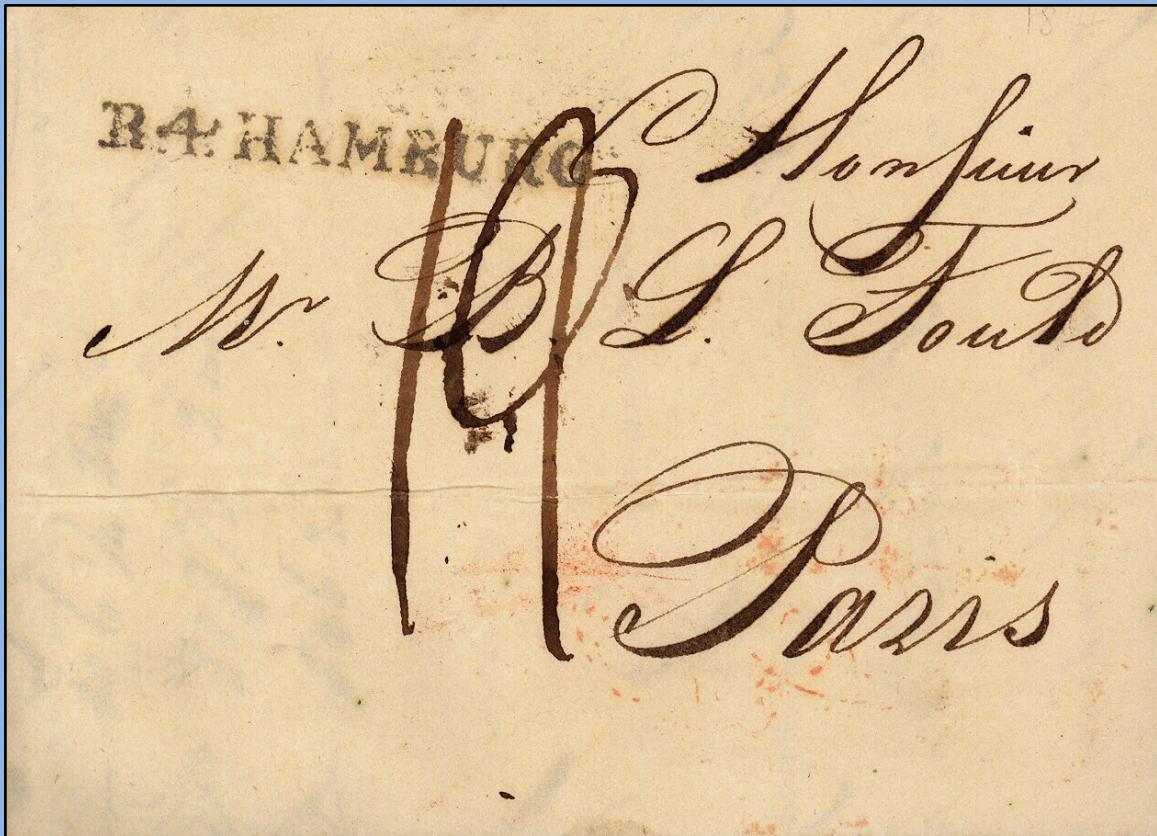 R.4. HAMBURG
Monsieur
Mr. B L. Fould
Paris